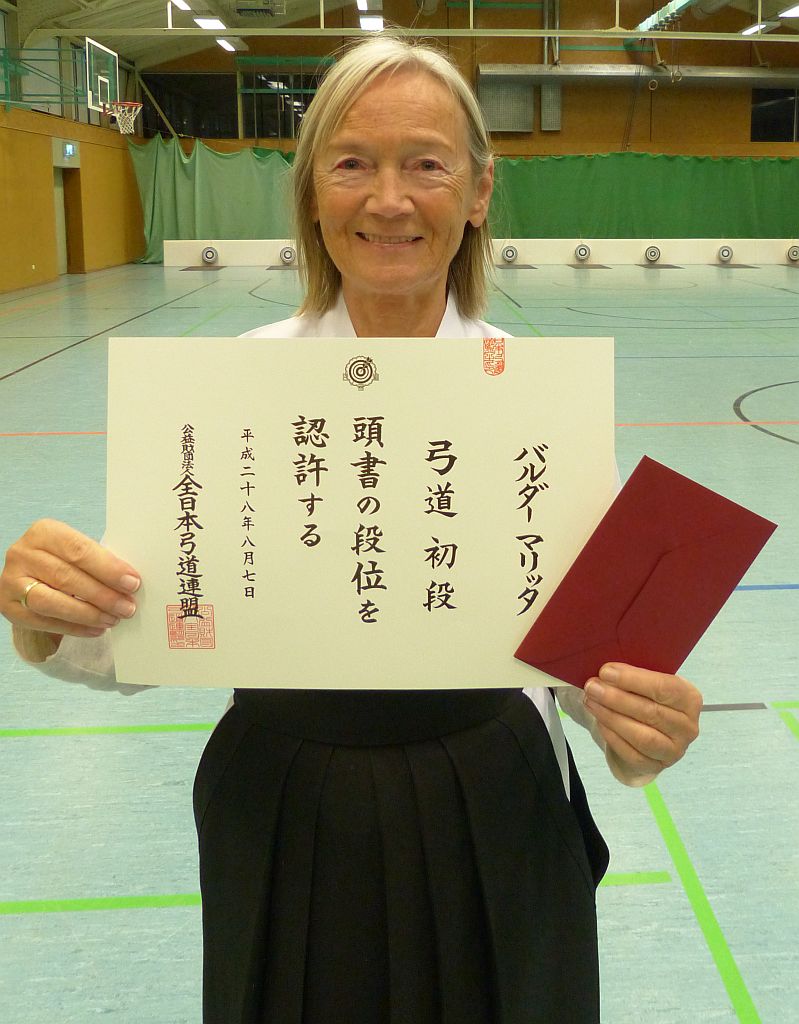 バルダー マリッタ
弓道 初段
頭書の段位を
認許する
平成二十八年八月七日
公益財団法人全日本弓道連盟